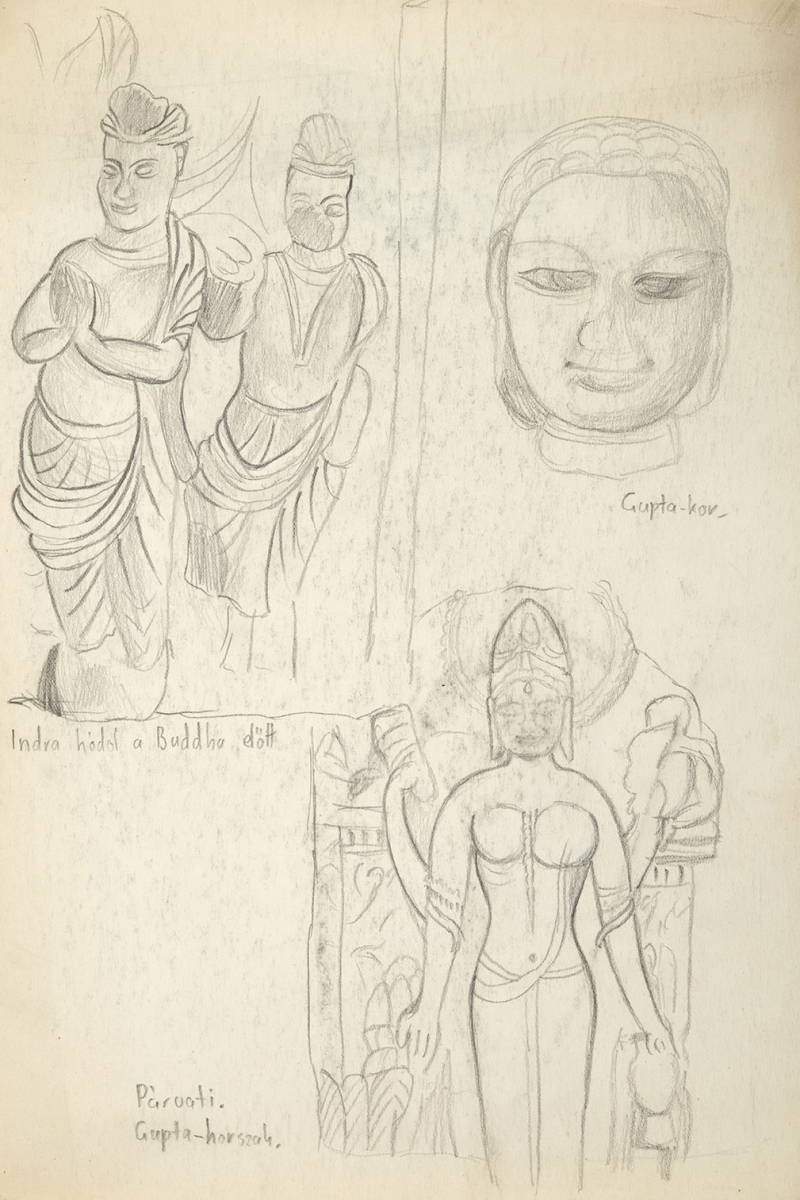 Gupta-kor.
Indra hódol a Buddha előtt
Párvati.
Gupta-korszak.